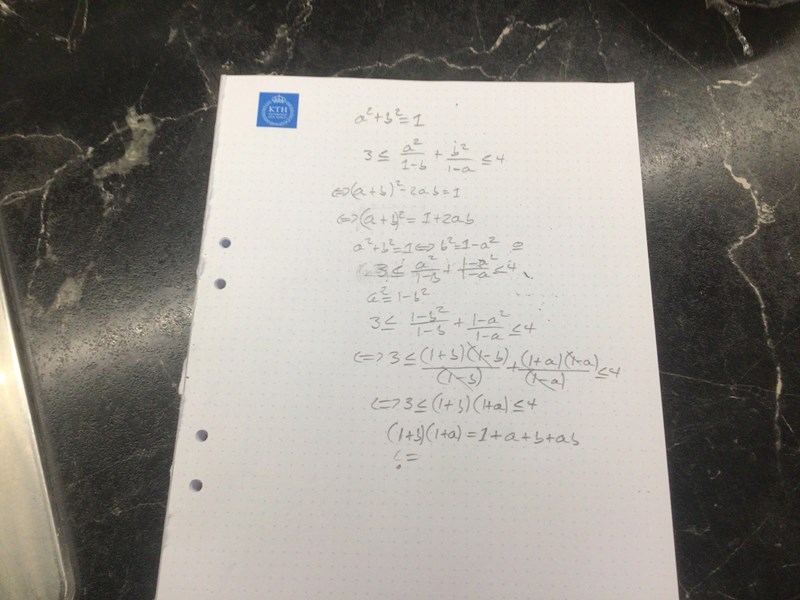 KTH
a²+b²=1
3 ≤ a²/(1-b) + b²/(1-a) ≤ 4
⇔ (a+b)² - 2ab = 1
⇔ (a+b)² = 1+2ab
a²+b²=1 ⇔ b²=1-a²
3 ≤ a²/(1-b) + (1-a²)/(1-a) ≤ 4
a²=1-b²
3 ≤ (1-b²)/(1-b) + (1-a²)/(1-a) ≤ 4
⇔ 3 ≤ (1+b)(1-b)/(1-b) + (1+a)(1-a)/(1-a) ≤ 4
⇔ 3 ≤ (1+b)(1+a) ≤ 4
(1+b)(1+a) = 1+a+b+ab
=